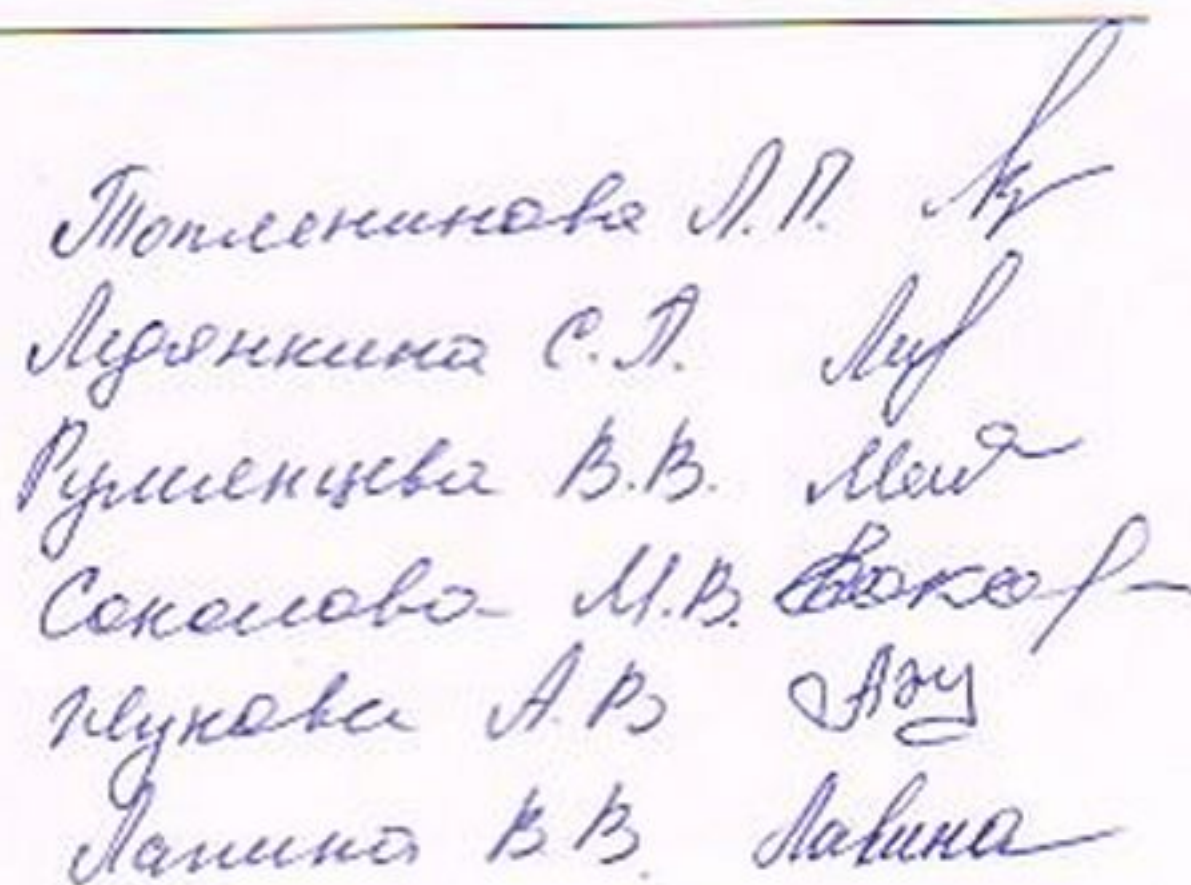 Топленинова Л.П.
Лудянкина С.П.
Румянцева В.В.
Соколова М.В.
Жукова А.В
Лапина В.В. Лапина